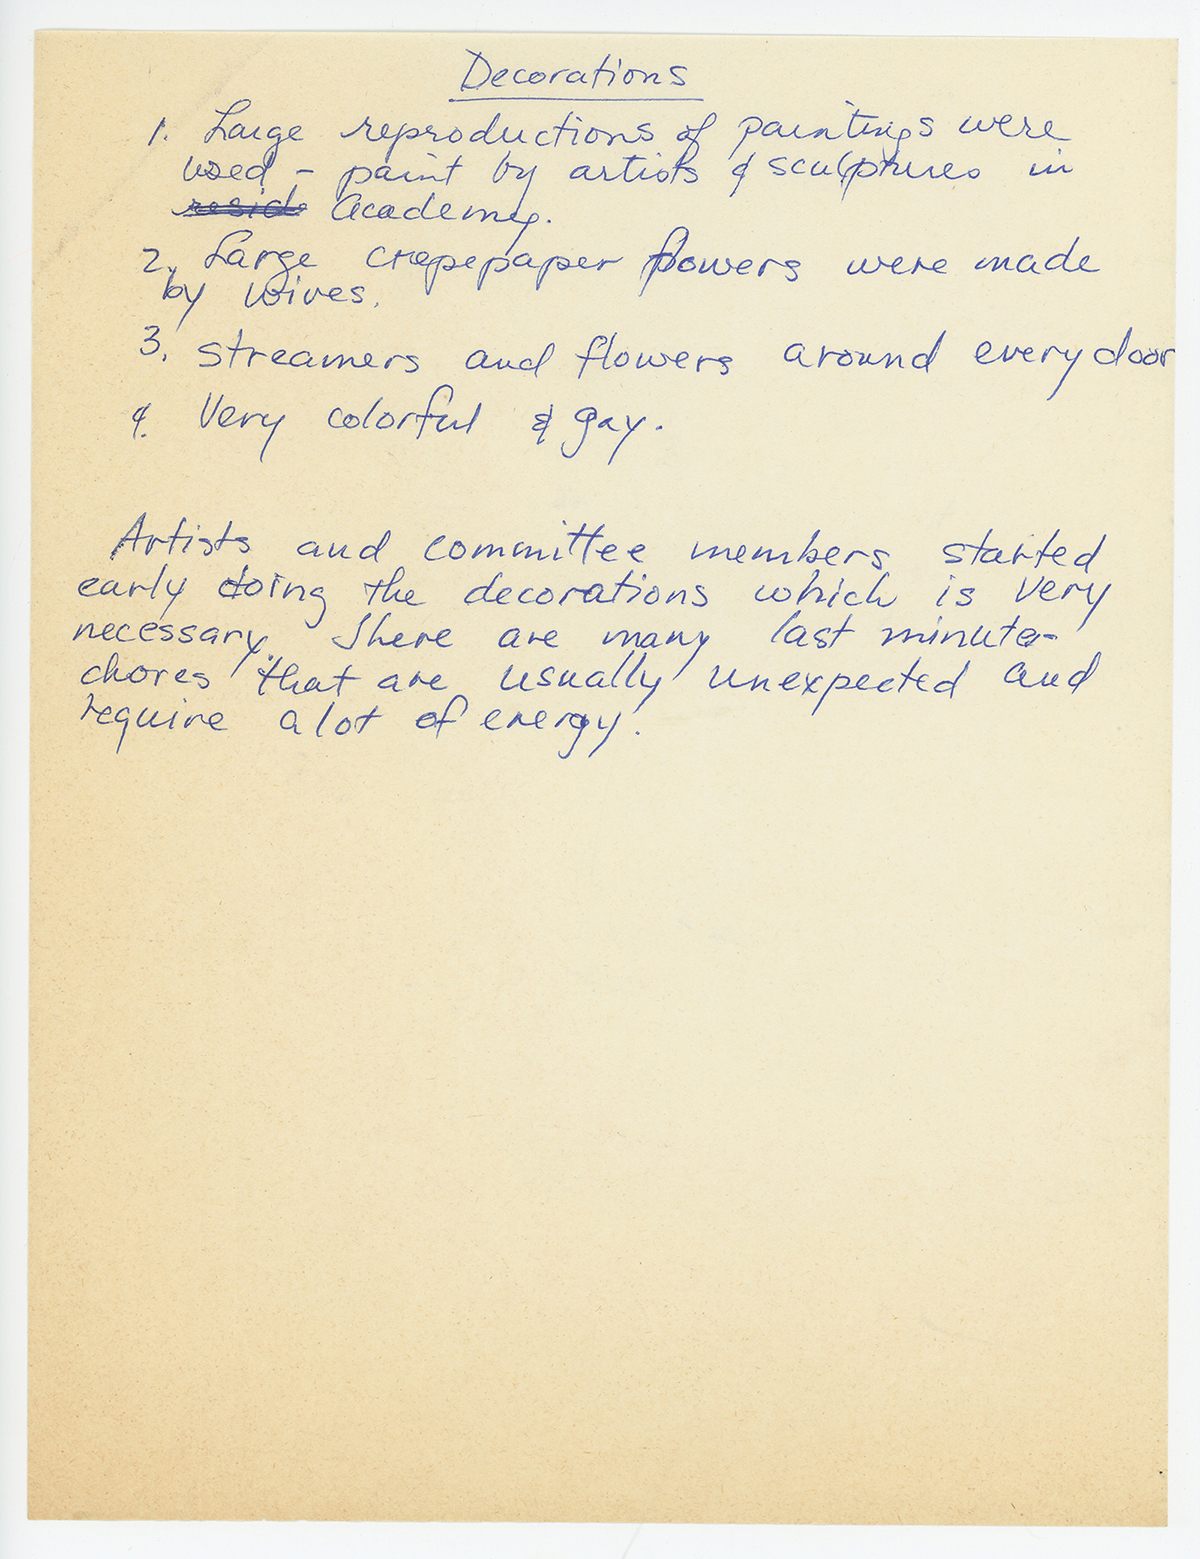 Decorations
1. Large reproductions of paintings were
used - paint by artists & sculptures in
Academy.
2. Large crepepaper flowers were made
by wives.
3. Streamers and flowers around every door
4. Very colorful & gay.
Artists and committee members started
early doing the decorations which is very
necessary. There are many last minute
chores that are usually unexpected and
require a lot of energy.